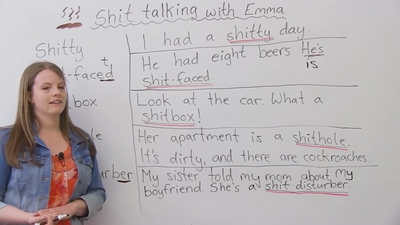 Shit talking with Emma
Shitty
I had a shitty day.
t
-faced
He had eight beers He's
is
shit-faced.
box
Look at the car. What a
shitbox!
Her apartment is a shithole.
It's dirty, and there are cockroaches.
My sister told my mom about my
boyfriend. She's a shit disturber.
urber